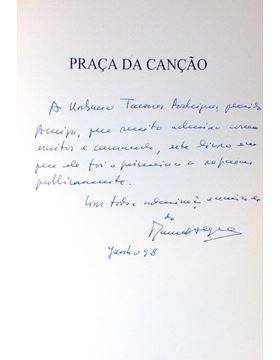 PRAÇA DA CANÇÃO
A Urbano Tavares Rodrigues, querido
Amigo, que muito admiro como
escritor e camarada, este livro em
que ele foi o primeiro a reparar
publicamente.
Com toda a admiração e amizade
do
Manuel Alegre
Junho 98